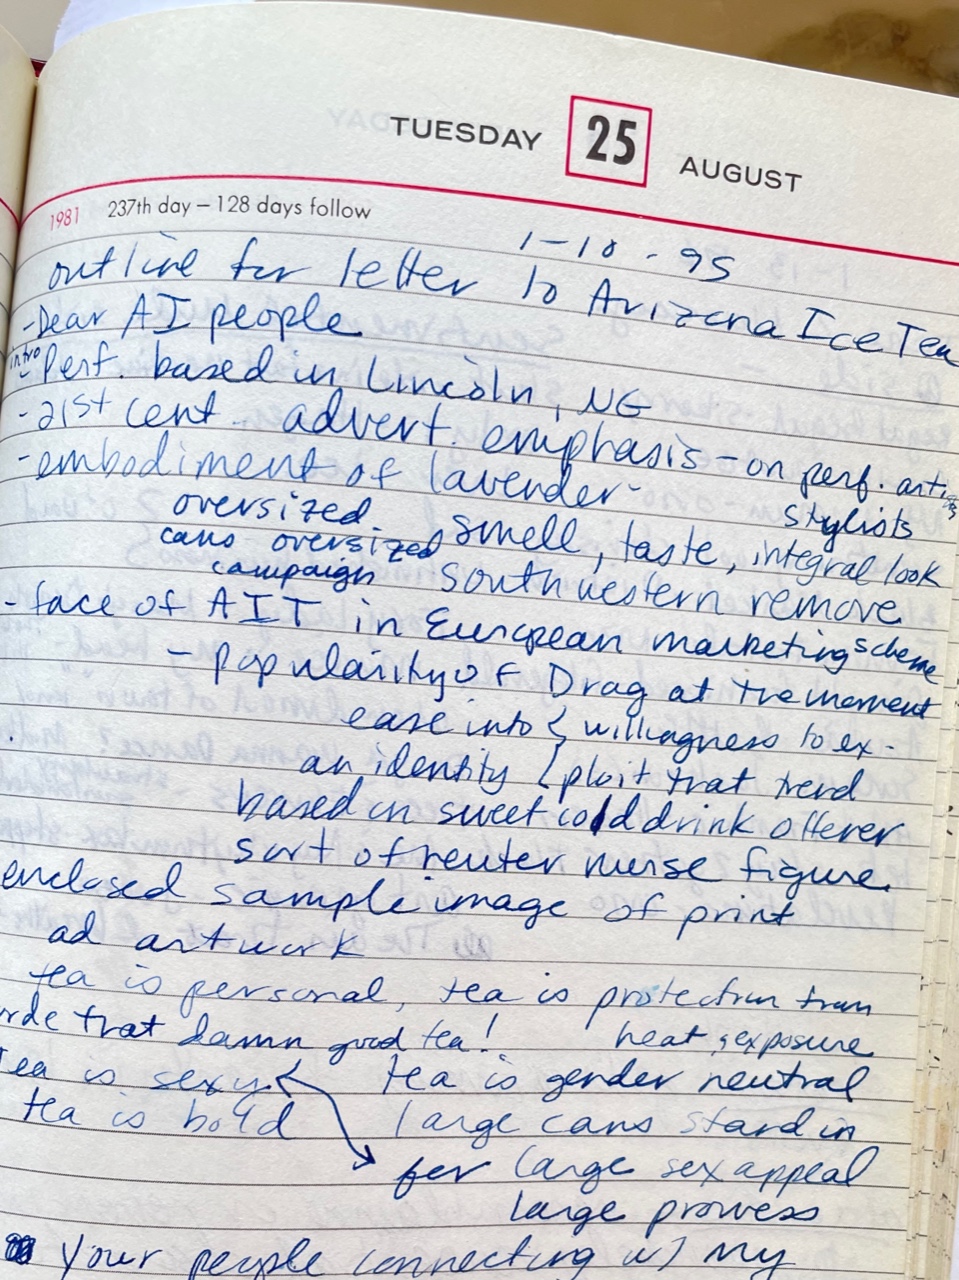 TUESDAY 25 AUGUST
1981 237th day – 128 days follow
1-10-95
outline for letter to Arizona Ice Tea
-Dear AI people
intro
- Perf. based in Lincoln, NE
- 21st cent. advert. emphasis - on perf. artists
stylists
- embodiment of lavender-
oversized smell, taste, integral look
cans oversized
campaign southwestern remove
- face of AIT in European marketing scheme
- popularity of Drag at the moment
ease into { willingness to ex-
an identity { ploit that trend
based on sweet cold drink offerer
sort of neuter nurse figure.
enclosed sample image of print
ad artwork
tea is personal, tea is protection from
that damn good tea! heat, exposure
tea is sexy tea is gender neutral
tea is bold large cans stand in
for large sex appeal
large prowess
your people connecting w/ my